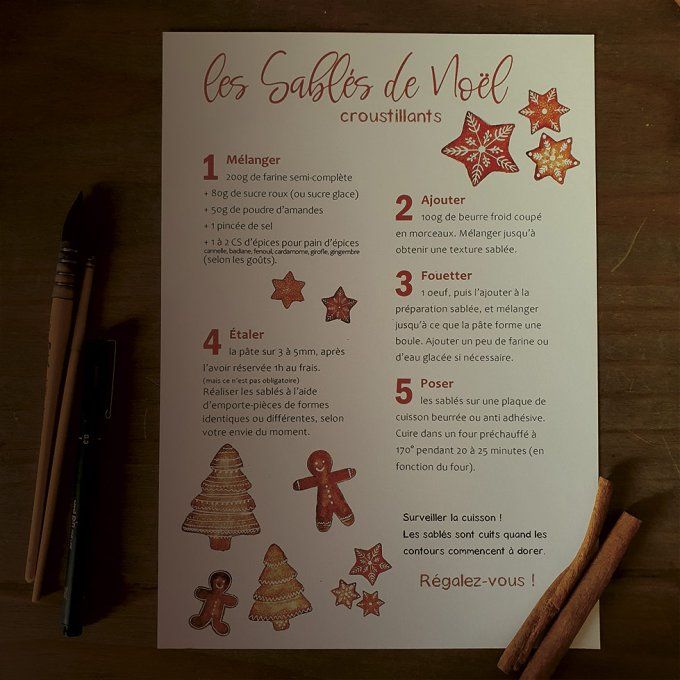 les Sablés de Noël
croustillants
1 Mélanger
200g de farine semi-complète
+ 80g de sucre roux (ou sucre glace)
+ 50g de poudre d'amandes
+ 1 pincée de sel
+ 1 à 2 CS d'épices pour pain d'épices
cannelle, badiane, fenouil, cardamome, girofle, gingembre
(selon les goûts).
2 Ajouter
100g de beurre froid coupé
en morceaux. Mélanger jusqu'à
obtenir une texture sablée.
3 Fouetter
1 oeuf, puis l'ajouter à la
préparation sablée, et mélanger
jusqu'à ce que la pâte forme une
boule. Ajouter un peu de farine ou
d'eau glacée si nécessaire.
4 Étaler
la pâte sur 3 à 5mm, après
l'avoir réservée 1h au frais.
(mais ce n'est pas obligatoire)
Réaliser les sablés à l'aide
d'emporte-pièces de formes
identiques ou différentes, selon
votre envie du moment.
5 Poser
les sablés sur une plaque de
cuisson beurrée ou anti adhésive.
Cuire dans un four préchauffé à
170° pendant 20 à 25 minutes (en
fonction du four).
Surveiller la cuisson !
Les sablés sont cuits quand les
contours commencent à dorer.
Régalez-vous !